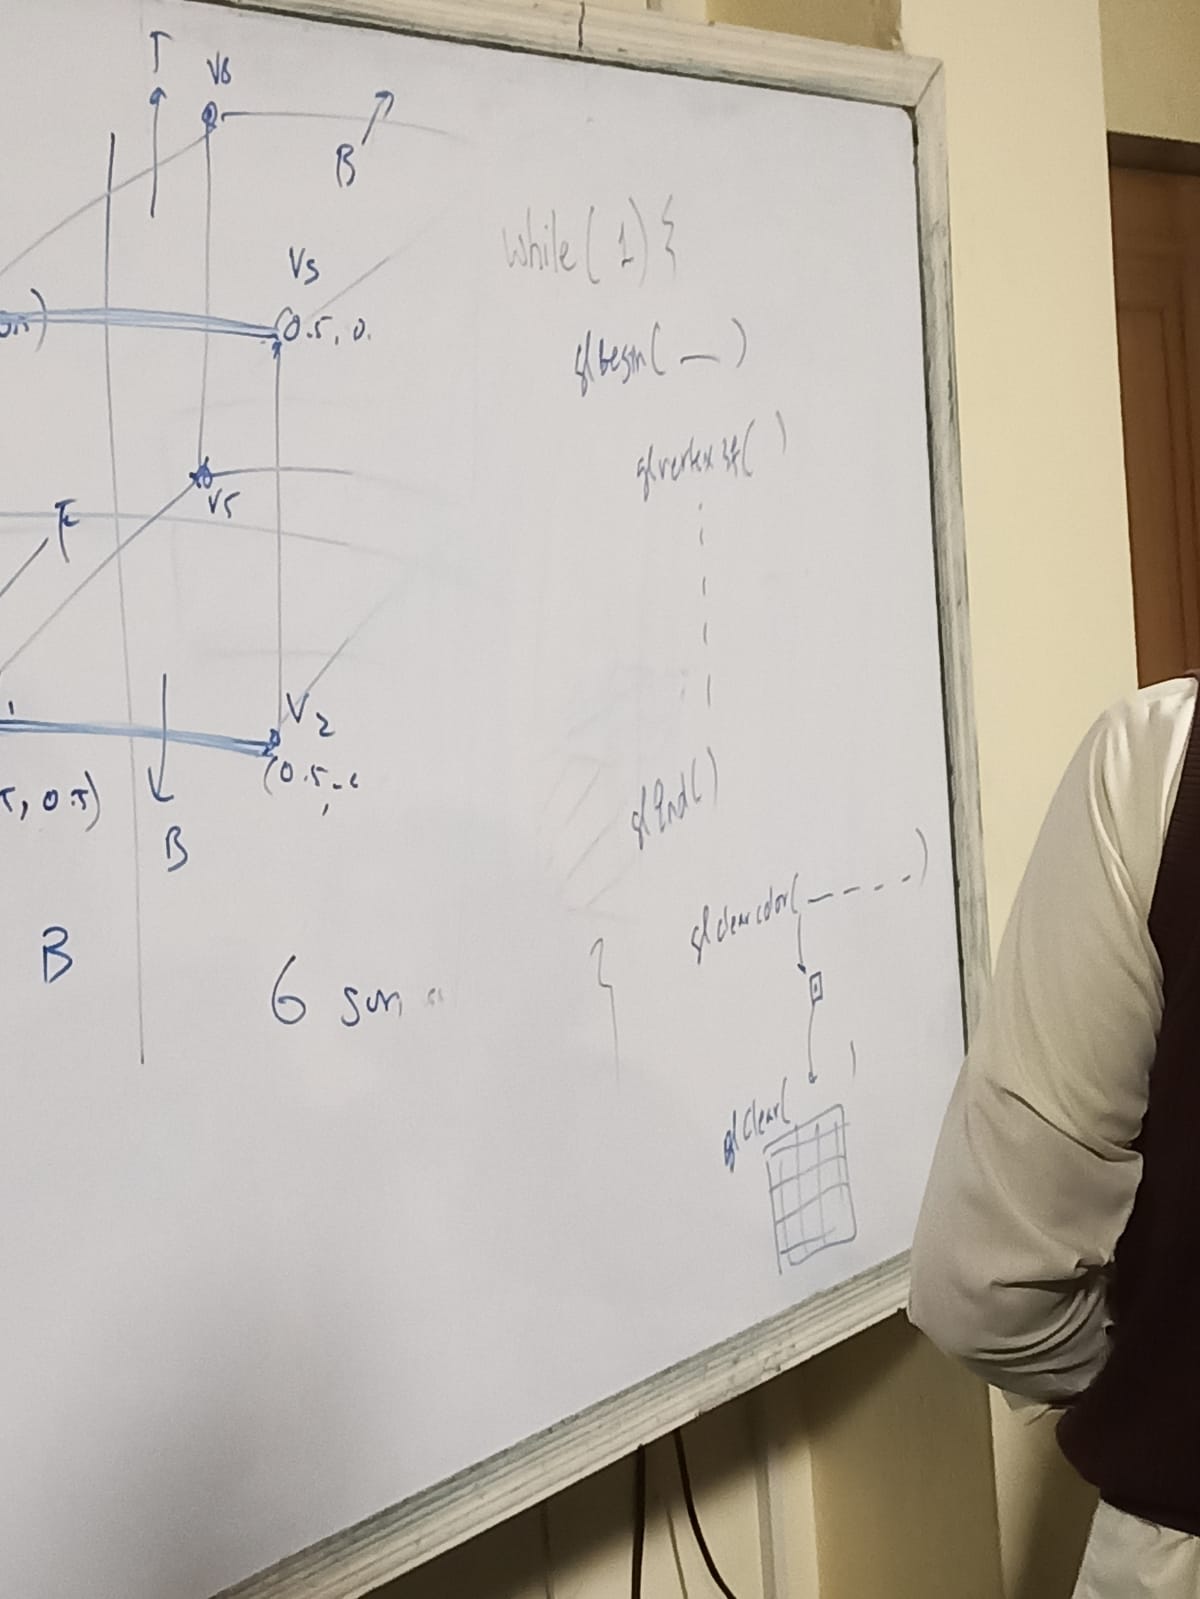 T
V6
B
V3
(0.5, 0.
V5
F
1
V2
(0.5, -
5, 0.5)
B
B
6 sur
while( 1 ) {
glbegin( — )
glvertex3f( )
glEnd( )
glclearcolor( — — — — )
}
glClear( )